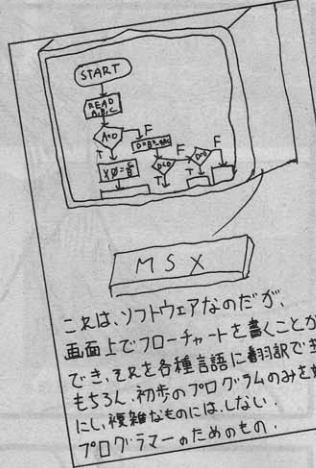 START
READ
A,B,C
A=0
F
T
D<0
F
T
D=0
F
MSX
これは、ソフトウェアなのだが、
画面上でフローチャートを書くことが
でき、それを各種言語に翻訳で
もちろん、初歩のプログラムのみを
にし、複雑なものにはしない。
プログラマーのためのもの。